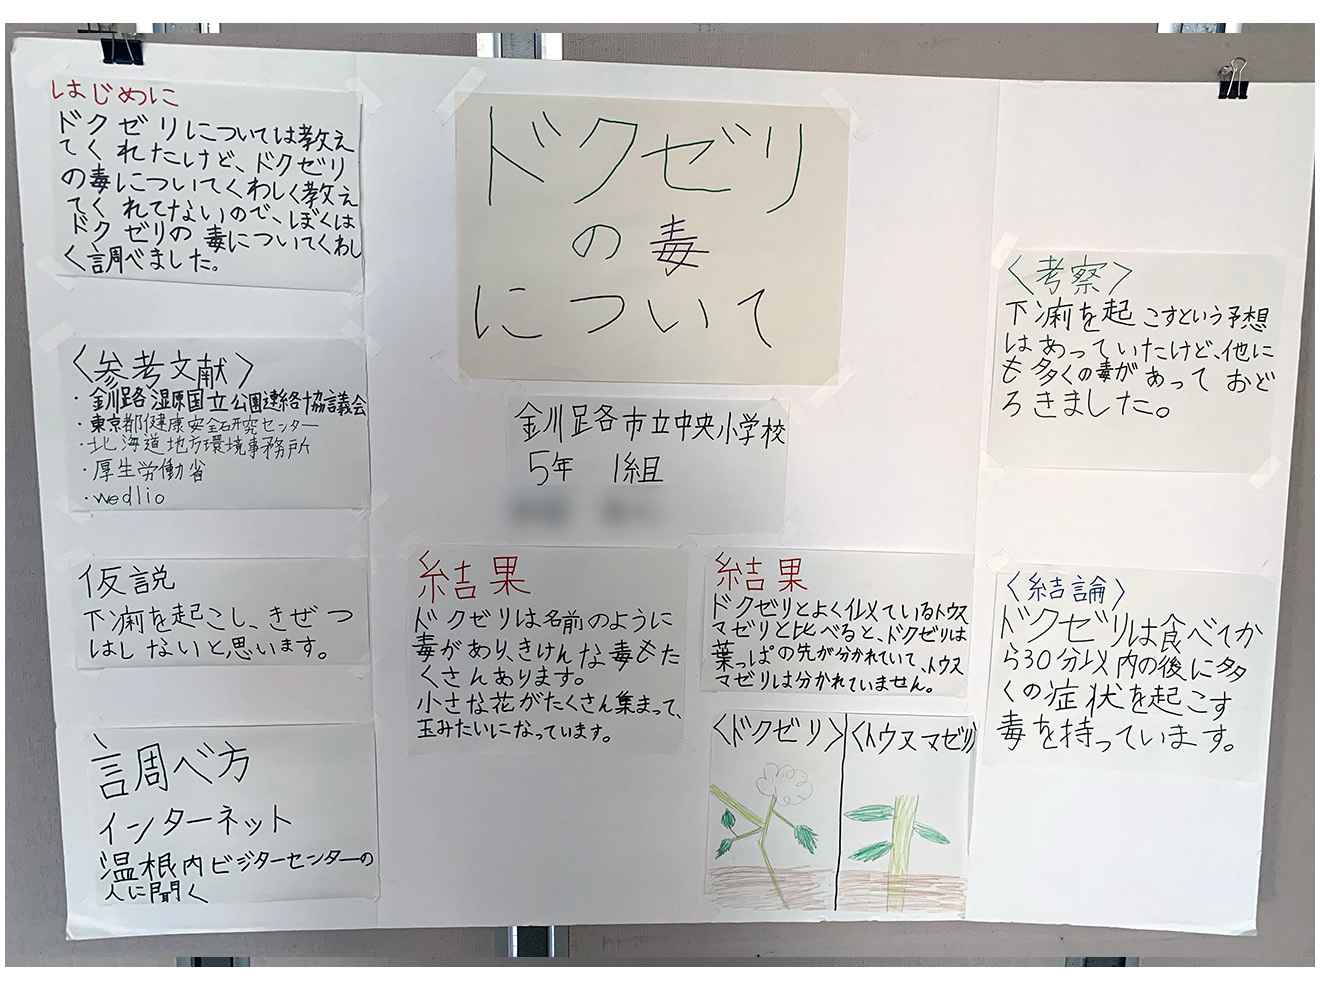 はじめに
ドクゼリについては教え
てくれたけど、ドクゼリ
の毒についてくわしく教え
てくれてないので、ぼくは
ドクゼリの毒についてくわし
く調べました。
〈参考文献〉
・釧路湿原国立公園連絡協議会
・東京都健康安全研究センター
・北海道地方環境事務所
・厚生労働省
・wedlio
仮説
下痢を起こし、きぜつ
はしないと思います。
調べ方
インターネット
温根内ビジターセンターの
人に聞く
ドクゼリ
の毒
について
釧路市立中央小学校
5年 1組
結果
ドクゼリは名前のように
毒があり、きけんな毒もた
くさんあります。
小さな花がたくさん集まって、
玉みたいになっています。
結果
ドクゼリとよく似ているトウヌ
マゼリと比べると、ドクゼリは
葉っぱの先が分かれていて、トウヌ
マゼリは分かれていません。
〈ドクゼリ〉
〈トウヌマゼリ〉
〈考察〉
下痢を起こすという予想
はあっていたけど、他に
も多くの毒があっておど
ろきました。
〈結論〉
ドクゼリは食べてか
ら30分以内の後に多
くの症状を起こす
毒を持っています。